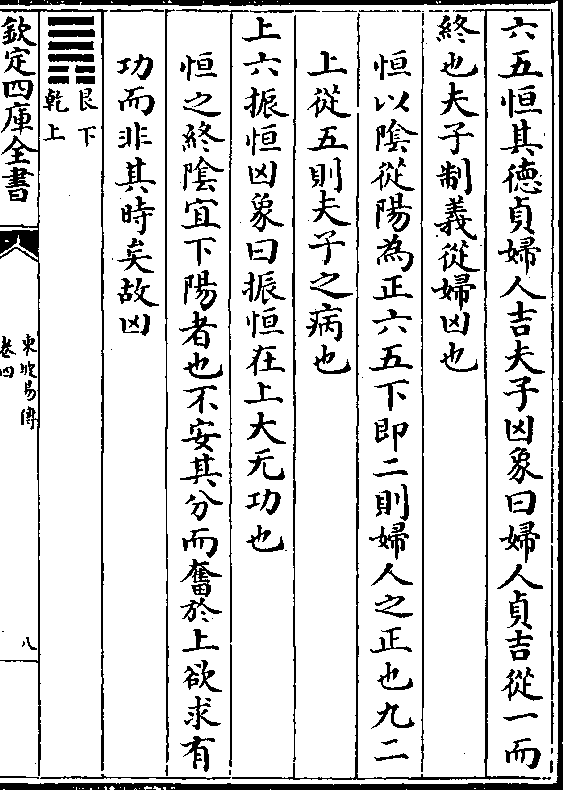 六五恒其德貞婦人吉夫子凶象曰婦人貞吉從一而
終也夫子制義從婦凶也
恒以陰從陽為正六五下即二則婦人之正也九二
上從五則夫子之病也
上六振恒凶象曰振恒在上大无功也
恒之終陰宜下陽者也不安其分而奮於上欲求有
功而非其時矣故凶
䷠
艮下
乾上
欽定四庫全書
東坡易傳
卷四
八